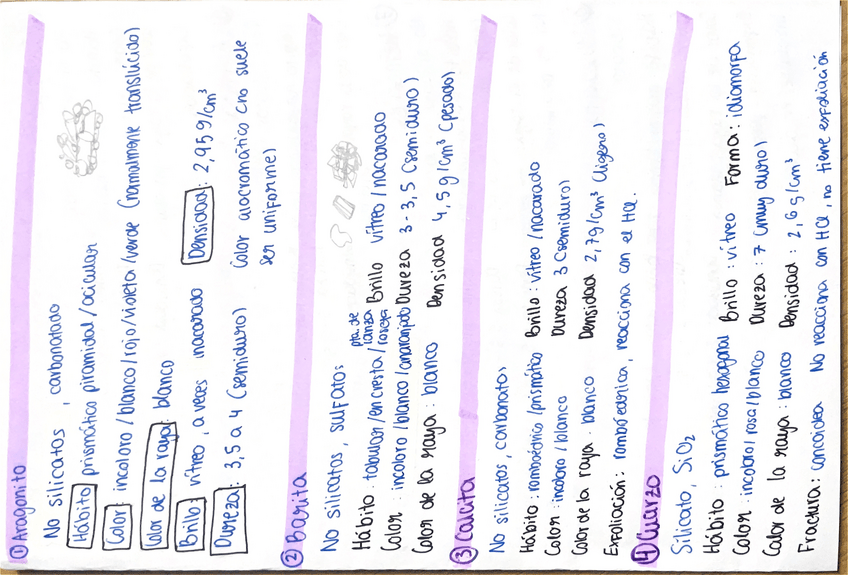 ① Aragonito
No silicatos, carbonatado
Hábito prismático piramidal / acicular
Color: incoloro / blanco / rojo / violeta / verde (normalmente translúcido)
Color de la raya: blanco
Brillo: vítreo, a veces nacarado Densidad: 2,95 g/cm³
Dureza: 3,5 a 4 (semiduro) Color alocromático (no suele
ser uniforme)
② Barita
No silicatos, sulfatos
Hábito: tabular / en cresta / pta. de lanza / roseta Brillo vítreo / nacarado
Color: incoloro / blanco / anaranjado Dureza 3 - 3,5 (semiduro)
Color de la raya: blanco Densidad 4,5 g/cm³ (pesada)
③ Calcita
No silicatos, carbonatos
Hábito: romboédrico / prismático Brillo: vítreo / nacarado
Color: incoloro / blanco Dureza 3 (semiduro)
Color de la raya: blanco Densidad 2,7 g/cm³ (ligero)
Exfoliación: romboédrica, reacciona con el HCl.
④ Cuarzo
Silicato, SiO₂
Hábito: prismático hexagonal Brillo: vítreo Forma: idiomorfa
Color: incoloro / rosa / blanco Dureza: 7 (muy duro)
Color de la raya: blanco Densidad: 2,6 g/cm³
Fractura: concoidea No reacciona con HCl, no tiene exfoliación